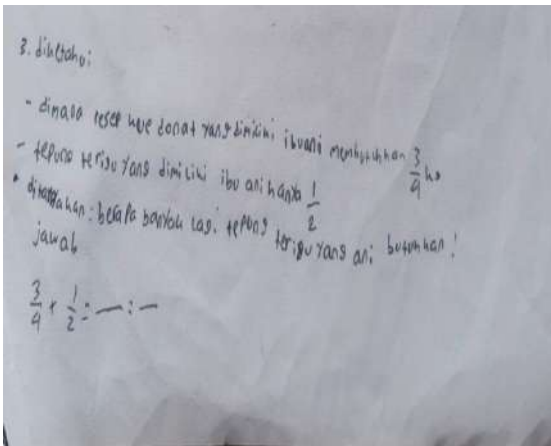 3. diketahui
- dimana resep kue donat yang dimiliki ibu ani membutuhkan 3/4 kg
- tepung terigu yang dimiliki ibu ani hanya 1/2
• ditanyakan: berapa banyak lagi tepung terigu yang ani butuhkan!
jawab
3/4 + 1/2 = — : —